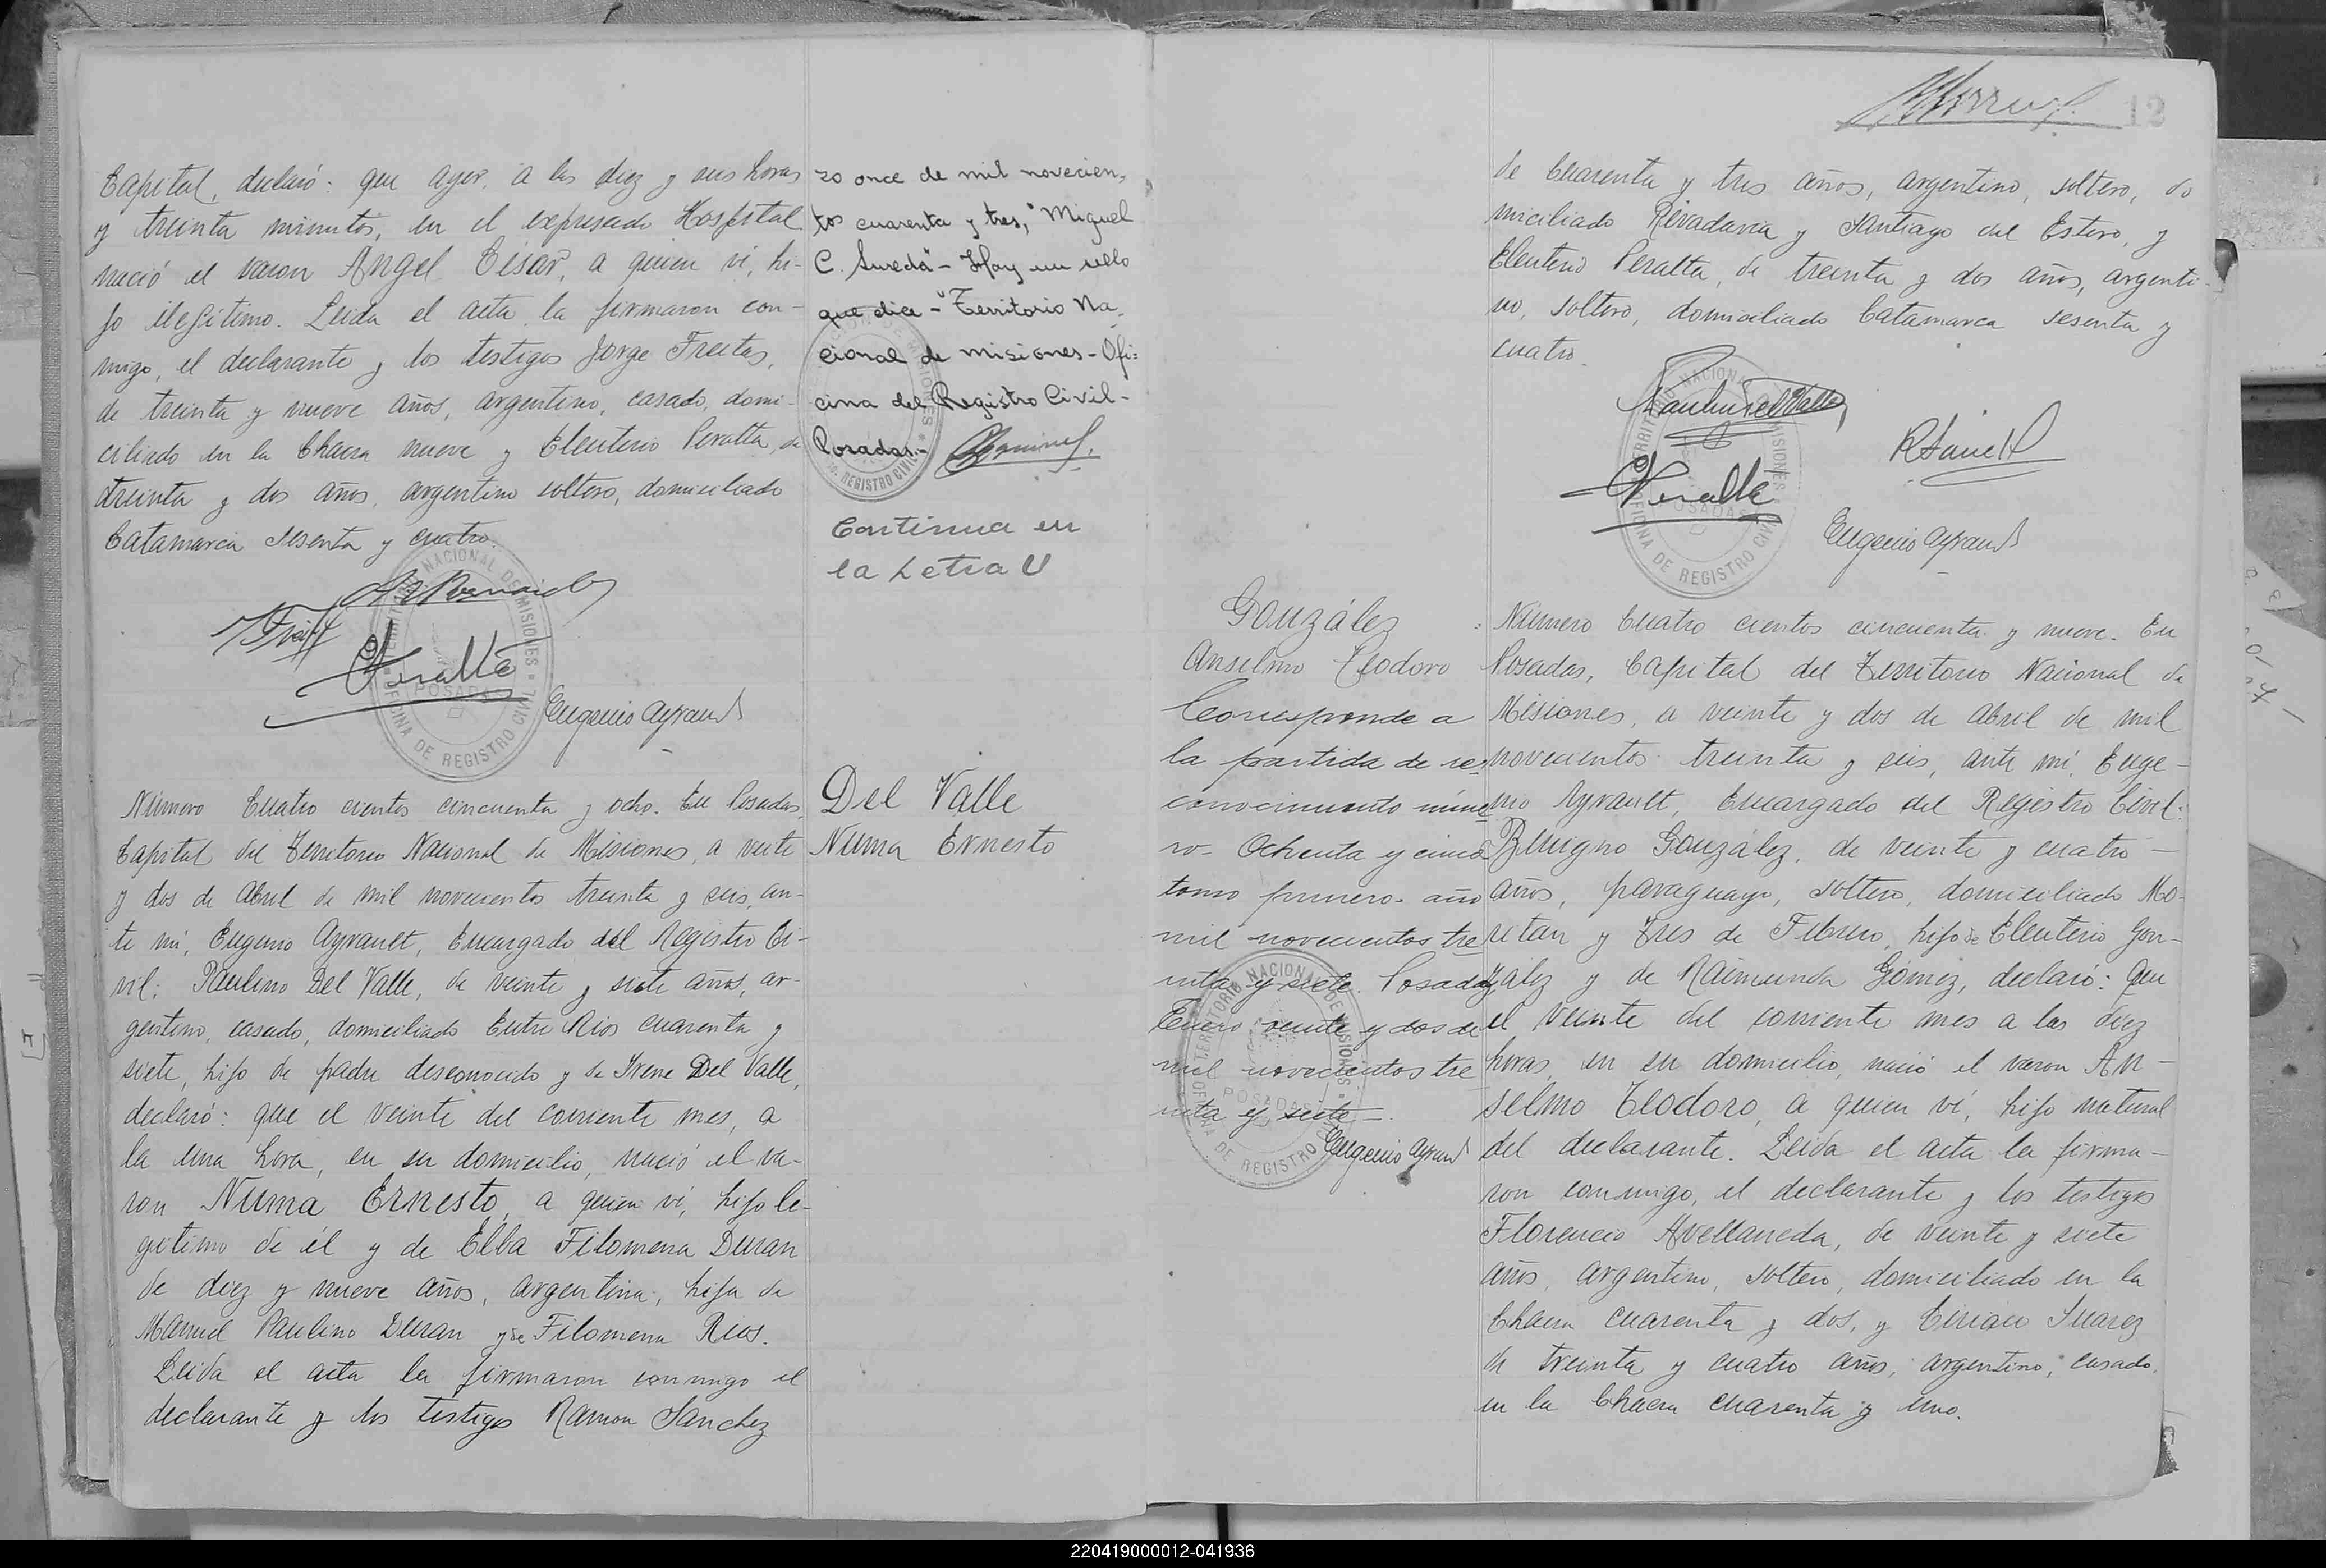 Capital, declaró: que ayer, a las diez y seis horas
y treinta minutos, en el expresado Hospital
nació el varon Angel Cesar, a quien ví, hi-
jo ilegítimo. Leida el acta la firmaron con-
migo, el declarante y los testigos Jorge Freitas,
de treinta y nueve años, argentino, casado, domi-
ciliado en la Chacra nueve y Eleuterio Peralta, de
treinta y dos años, argentino soltero, domiciliado
Catamarca sesenta y cuatro.
Peralta
Eugenio Ayrault
NACIONAL DE MISIONES
POSADAS
OFICINA DE REGISTRO CIVIL
ro once de mil novecien,
tos cuarenta y tres," Miguel
C. Sureda" - Hay un sello
que dice - "Territorio Na,
cional de misiones - Ofi=
cina del Registro Civil -
Posadas. -
REGISTRO CIVIL
Continua en
la Letra U
Número Cuatro cientos cincuenta y ocho. En Posadas,
Capital del Territorio Nacional de Misiones, a veite
y dos de Abril de mil novecientos treinta y seis, an-
te mí, Eugenio Ayrault, Encargado del Registro Ci-
vil: Paulino Del Valle, de veinte y siete años, ar-
gentino, casado, domiciliado Entre Rios cuarenta y
siete, hijo de padre desconocido y de Irene Del Valle,
declaró: que el veinte del corriente mes, a
la una hora, en su domicilio, nació el va-
ron Numa Ernesto, a quien ví, hijo le-
gitimo de él y de Elba Filomena Duran
de diez y nueve años, argentina, hija de
Manuel Paulino Duran y de Filomena Rios.
Leida el acta la firmaron conmigo el
declarante y los testigos Ramon Sanchez
Del Valle
Numa Ernesto
12
de Cuarenta y tres años, argentino, soltero, do
miciliado Rivadavia y Santiago del Estero, y
Eleuterio Peralta, de treinta y dos años, argenti-
no, soltero, domiciliado Catamarca sesenta y
cuatro.
Paulino del Valle
Peralta
Eugenio Ayrault
TERRITORIO NACIONAL DE MISIONES
POSADAS
OFICINA DE REGISTRO CIVIL
González
Anselmo Teodoro
Corresponde a
la partida de re-
conocimiento núme
ro - Ochenta y cinco
tomo primero - año
mil novecientos tre
inta y siete. Posadas,
Enero veinte y dos de
mil novecientos tre
inta y siete -.
Eugenio Ayrault
TERRITORIO NACIONAL DE MISIONES
POSADAS
OFICINA DE REGISTRO CIVIL
Número Cuatro cientos cincuenta y nueve. En
Posadas, Capital del Territorio Nacional de
Misiones, a veinte y dos de Abril de mil
novecientos treinta y seis, ante mí, Euge-
nio Ayrault, Encargado del Registro Civil:
Benigno González, de veinte y cuatro -
años, paraguayo, soltero, domiciliado Mo-
retan y Tres de Febrero, hijo de Eleuterio Gon-
zález y de Raimunda Gómez, declaró: Que
el veinte del corriente mes a las diez
horas, en su domicilio, nació el varon An-
selmo Teodoro, a quien ví, hijo natural
del declarante. Leida el acta la firma-
ron conmigo, el declarante y los testigos
Florencio Avellaneda, de veinte y siete
años, argentino, soltero, domiciliado en la
Chacra cuarenta y dos, y Ciriaco Suarez
de treinta y cuatro años, argentino, casado,
en la Chacra cuarenta y uno.
220419000012-041936